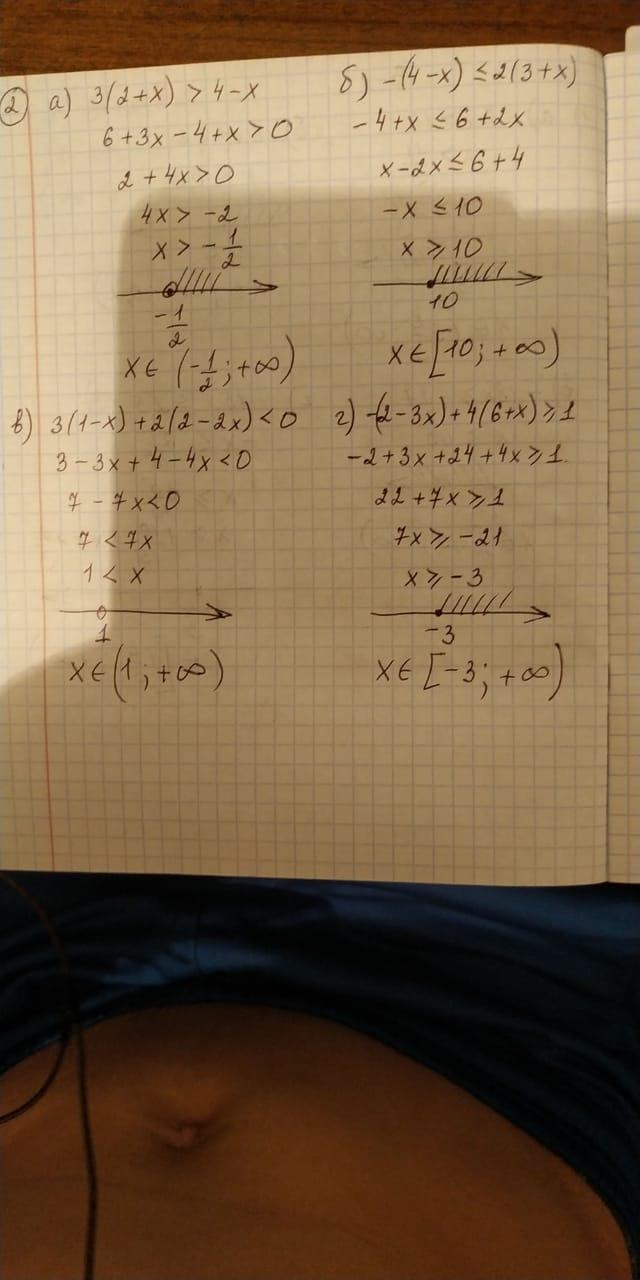 2 а) 3(2+x) > 4-x
6+3x-4+x>0
2+4x>0
4x > -2
x > -1/2
-1/2
x ∈ (-1/2; +∞)
б) -(4-x) ≤ 2(3+x)
-4+x ≤ 6+2x
x-2x ≤ 6+4
-x ≤ 10
x ⩾ 10
10
x ∈ [10; +∞)
в) 3(1-x)+2(2-2x)<0
3-3x+4-4x<0
7-7x<0
7<7x
1<x
1
x ∈ (1; +∞)
г) -(2-3x)+4(6+x)⩾1
-2+3x+24+4x⩾1.
22+7x⩾1
7x⩾-21
x⩾-3
-3
x ∈ [-3; +∞)